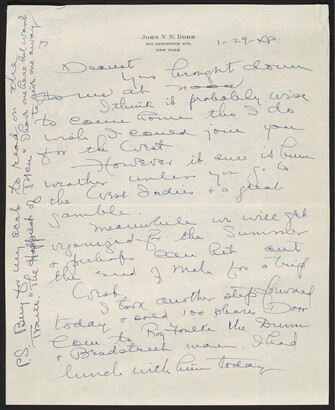 JOHN V. N. DORR
NEW YORK
1-29-48
Dearest
Yrs brought down
to me at noon
I think it probably wise
to come home tho I do
wish I could join you
for the West
However it sure is bum
weather unless you go to
the West Indies & a great
gamble.
Meanwhile we will get
organized for the Summer
& perhaps can hit out
the end of Mch for a trip
West
I took another step forward
today & sold 100 shares Dorr
Com to Roy Foulke the Dunn
& Bradstreet man. I had
lunch with him today
P.S. Buy for us each to read on the
Train "The Happiest of Men"
to give one away